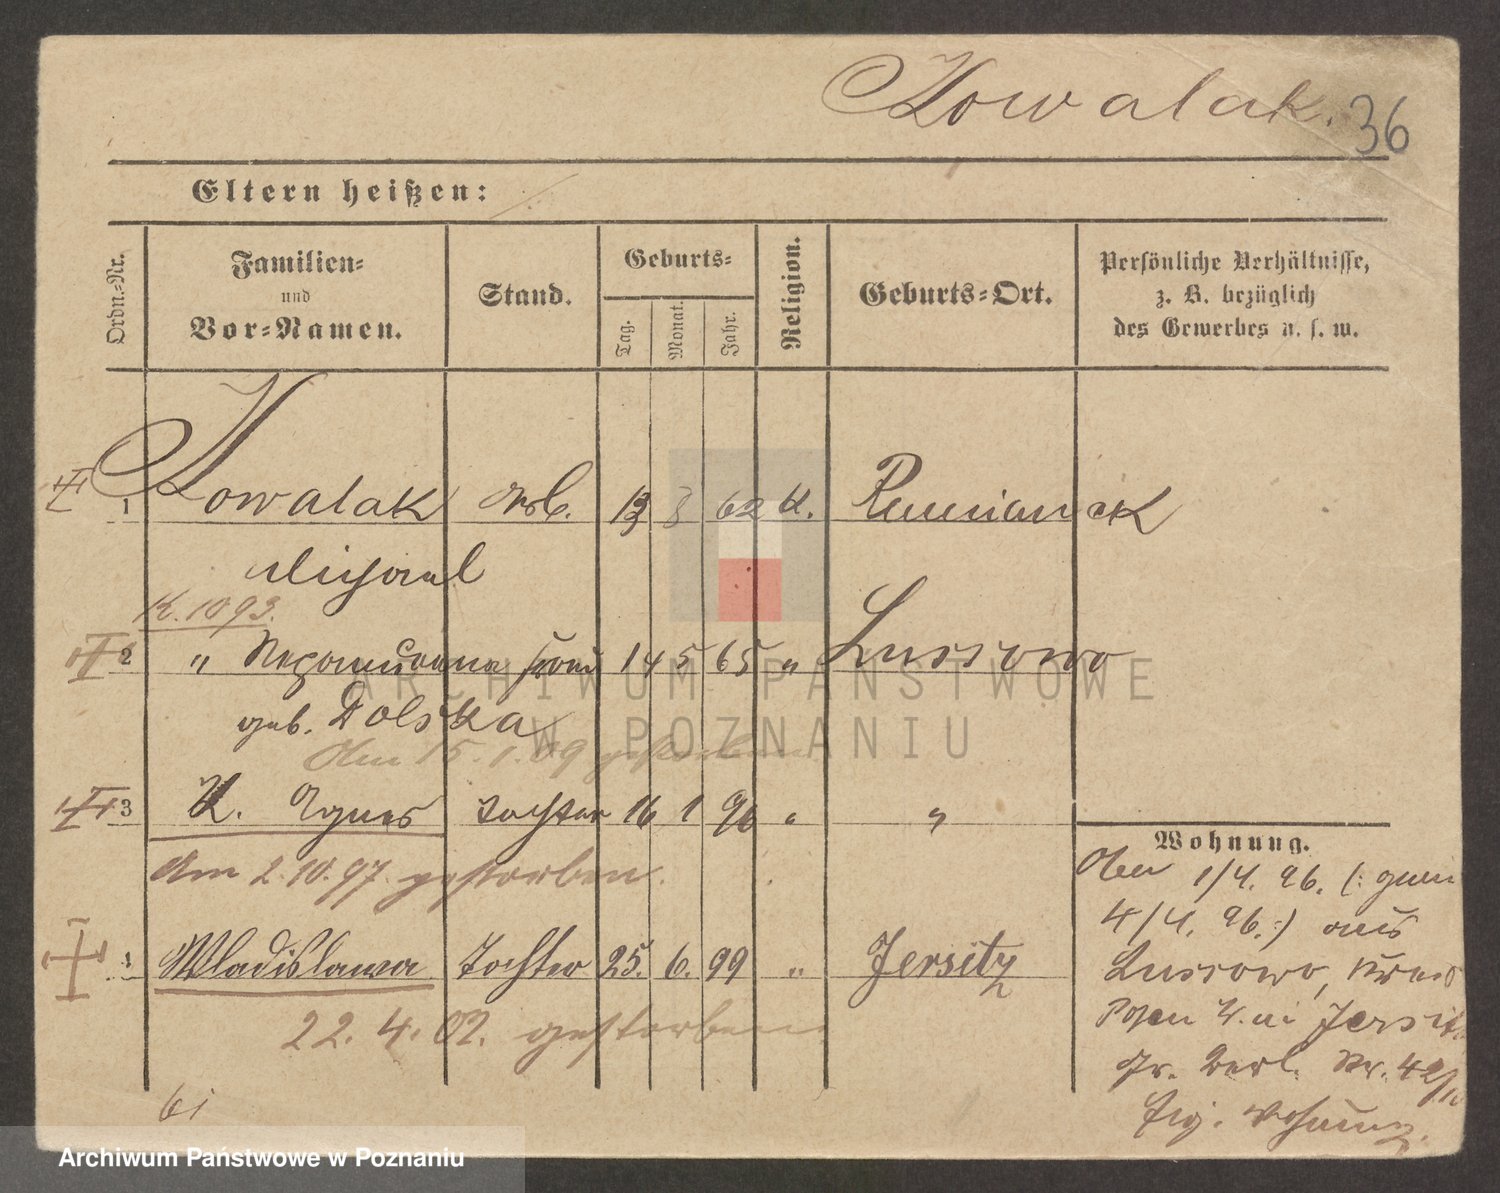 Kowalak. 36
Eltern heißen:
Ordn.-Nr.
Familien-
und
Vor-Namen.
Stand.
Geburts-
Tag.
Monat.
Jahr.
Religion.
Geburts-Ort.
Persönliche Verhältnisse,
z. B. bezüglich
des Gewerbes u. s. w.
1 Kowalak Arb. 62 K.
Michael
K. 10 93.
2 " Nepomucena Frau 14 5 65 " Lussowo
geb. Dolska
Am 15. 1. 09 gestorben
3 K. Agnes Tochter 16 1 96 " "
Am 2. 10. 97. gestorben.
Wladislawa Tochter 25. 6. 99 " Jersitz
22. 4. 02. gestorben
61
Wohnung.
1/4. 96. (: gem
4/4. 96. :) aus
Lussowo, Kreis
Posen W. in Jersitz
Gr. Berl. Nr. 42/
Eig. Wohnung.
ARCHIWUM PAŃSTWOWE
W POZNANIU
Archiwum Państwowe w Poznaniu